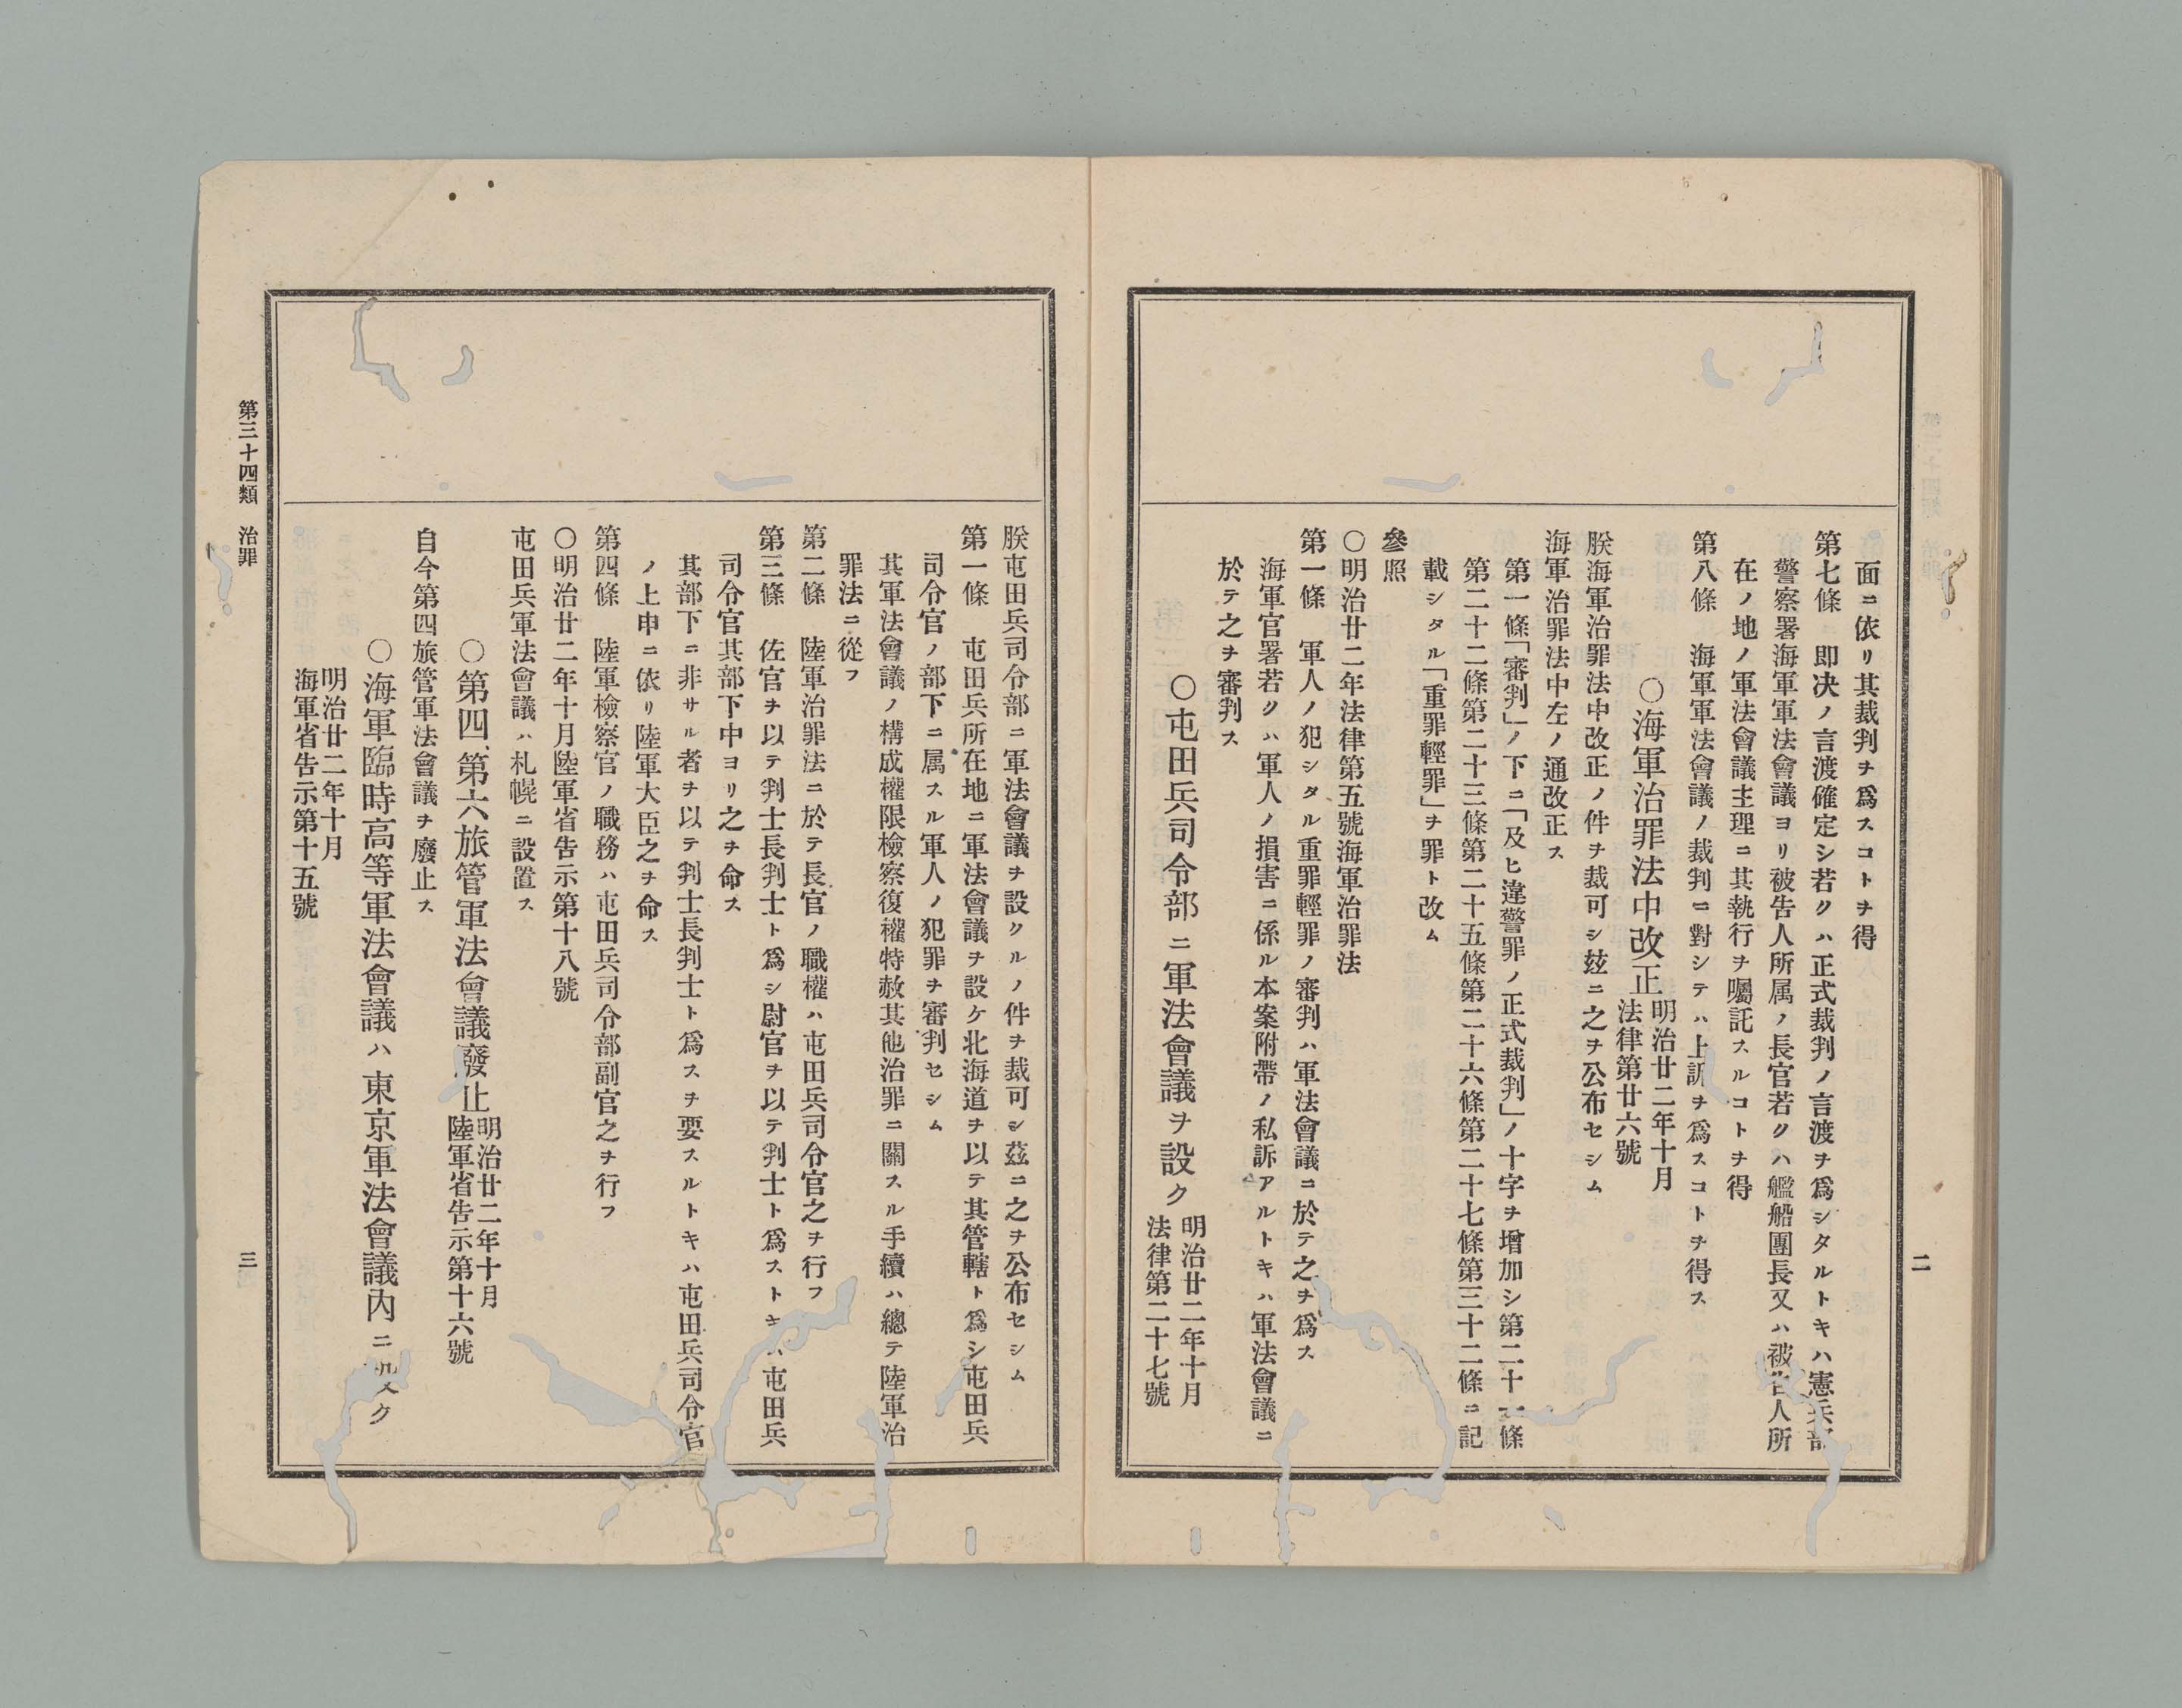 二
面ニ依リ其裁判ヲ爲スコトヲ得
第七條　即决ノ言渡確定シ若クハ正式裁判ノ言渡ヲ爲シタルトキハ憲兵部
警察署海軍軍法會議ヨリ被告人所属ノ長官若クハ艦船團長又ハ被告人所
在ノ地ノ軍法會議主理ニ其執行ヲ囑託スルコトヲ得
第八條　海軍軍法會議ノ裁判ニ對シテハ上訴ヲ爲スコトヲ得ス
〇海軍治罪法中改正
明治廿二年十月
法律第廿六號
朕海軍治罪法中改正ノ件ヲ裁可シ玆ニ之ヲ公布セシム
海軍治罪法中左ノ通改正ス
第一條「審判」ノ下ニ「及ヒ違警罪ノ正式裁判」ノ十字ヲ增加シ第二十一條
第二十二條第二十三條第二十五條第二十六條第二十七條第三十二條ニ記
載シタル「重罪輕罪」ヲ罪ト改ム
參照
〇明治廿二年法律第五號海軍治罪法
第一條　軍人ノ犯シタル重罪輕罪ノ審判ハ軍法會議ニ於テ之ヲ爲ス
海軍官署若クハ軍人ノ損害ニ係ル本案附帶ノ私訴アルトキハ軍法會議ニ
於テ之ヲ審判ス
〇屯田兵司令部ニ軍法會議ヲ設ク
明治廿二年十月
法律第二十七號
朕屯田兵司令部ニ軍法會議ヲ設クルノ件ヲ裁可シ茲ニ之ヲ公布セシム
第一條　屯田兵所在地ニ軍法會議ヲ設ケ北海道ヲ以テ其管轄ト爲シ屯田兵
司令官ノ部下ニ属スル軍人ノ犯罪ヲ審判セシム
其軍法會議ノ構成權限檢察復權特赦其他治罪ニ關スル手續ハ總テ陸軍治
罪法ニ從フ
第二條　陸軍治罪法ニ於テ長官ノ職權ハ屯田兵司令官之ヲ行フ
第三條　佐官ヲ以テ判士長判士ト爲シ尉官ヲ以テ判士ト爲ストキハ屯田兵
司令官其部下中ヨリ之ヲ命ス
其部下ニ非サル者ヲ以テ判士長判士ト爲スヲ要スルトキハ屯田兵司令官
ノ上申ニ依リ陸軍大臣之ヲ命ス
第四條　陸軍檢察官ノ職務ハ屯田兵司令部副官之ヲ行フ
〇明治廿二年十月陸軍省告示第十八號
屯田兵軍法會議ハ札幌ニ設置ス
〇第四、第六旅管軍法會議廢止
明治廿二年十月
陸軍省告示第十六號
自今第四旅管軍法會議ヲ廢止ス
〇海軍臨時高等軍法會議ハ東京軍法會議内ニ設ク
明治廿二年十月
海軍省告示第十五號
第三十四類　治罪
三